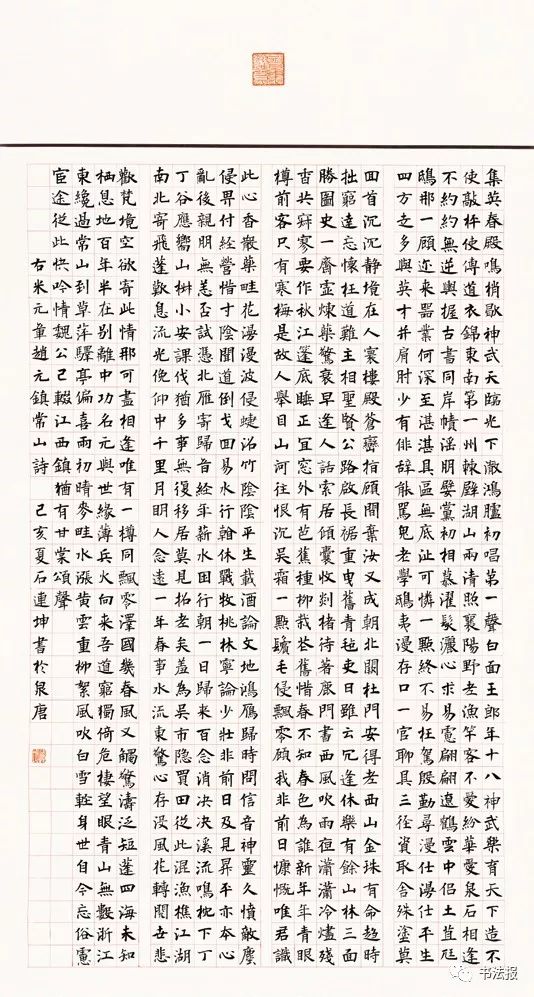 集英春殿鳴梢歇神武天臨光下澈鴻臚初唱第一聲白面王郎年十八神武樂育天下造不
使敲枰使傳道衣錦東南第一州棘壁湖山兩清照襄陽野老漁竿客不愛紛華愛泉石相逢
不約約無逆與握古書同岸幘淫朋嬖黨初相慕濯髮灑心求易慮翩翩遼鶴雲中侶土苴尫
鴟那一顧迩来器業何深至湛湛具區無底沚可憐一點終不易枉駕殷勤尋漫仕漫仕平生
四方走多與英才并肩肘少有俳辞能罵鬼老學鴟夷漫存口一官聊具三徑資取舍殊塗莫
回首沉沉静境在人寰樓殿蒼巒指顧間棄汝又成朝北闕杜門安得老西山金珠有命趨時
拙窮達忘懷枉道難主相聖賢公路啟長裾重曳舊青氈吏日雖云冗逢休樂有餘山林三面
勝圖史一齋靈煉藥驚衰早逢人話索居傾囊收剡楮待著嚴門書西風吹雨夜瀟瀟冷燼殘
香共寂寥要作秋江篷底睡正宜窗外有芭蕉種柳栽芭舊惜春不知春色為誰新年年青眼
樽前客只有寒梅是故人舉目山河往恨沉吳霜一點鬢毛侵飄零顧我非前日慷慨唯君識
此心杳靄藥畦花漫漫波侵蜨沼竹陰陰平生載酒論文地鴻雁歸時問信音神靈久憤敵塵
侵畀付經營惜寸陰聞道倒戈回易水行翰休戰牧桃林寧論少壯非前日及見昇平亦本心
亂後親朋無恙否試憑北雁寄歸音經年薪水困行朝一日歸来百念消決決溪流鳴枕下丁
丁谷應響山樹小安課伐猶多事無復移居莫見拓老矣羞為吳市隱買田從此混漁樵江湖
南北寄飛蓬歎息流光俛仰中千里月明人念遠一年春事水流東驚心存没風花轉閱世悲
歡梵境空欲寄此情那可盡相逢唯有一樽同飄零澤國幾春風又觸驚濤泛短蓬四海未知
栖息地百年半在别離中功名元與世緣薄兵火向來吾道窮獨倚危樓望眼青山無數浙江
東纔過常山到草萍驛亭偏喜雨初晴麥畦水漲黄雲重柳絮風吹白雪輕身世自今忘俗慮
宦途從此快吟情魏公已輟江西鎮猶有甘棠頌聲
右米元章趙元鎮常山詩 己亥夏石連坤書於泉唐
书法报